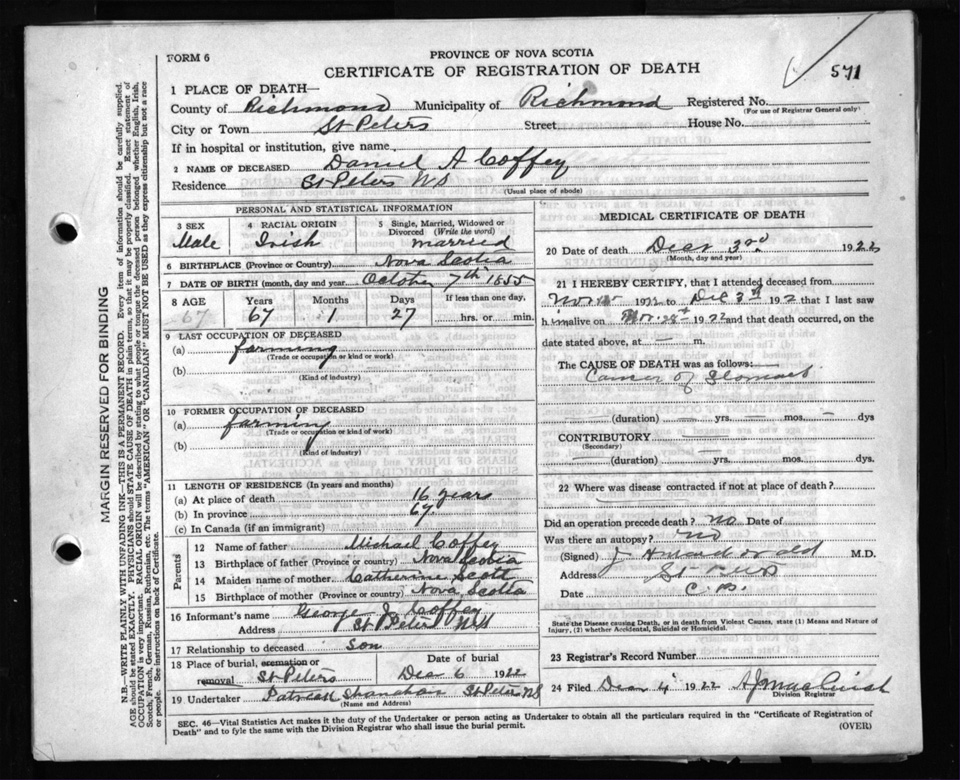 571
FORM 6
PROVINCE OF NOVA SCOTIA
CERTIFICATE OF REGISTRATION OF DEATH
1 PLACE OF DEATH—
County of Richmond Municipality of Richmond Registered No.
(For use of Registrar General only)
City or Town St Peters Street House No.
If in hospital or institution, give name
2 NAME OF DECEASED Daniel A Coffey
Residence St Peters NS
(Usual place of abode)
PERSONAL AND STATISTICAL INFORMATION
3 SEX Male
4 RACIAL ORIGIN Irish
5 Single, Married, Widowed or Divorced (Write the word) married
6 BIRTHPLACE (Province or Country) Nova Scotia
7 DATE OF BIRTH (month, day and year) October 7th 1855
8 AGE Years Months Days If less than one day,
67 67 1 27 hrs. or min.
9 LAST OCCUPATION OF DECEASED
(a) farming
(Trade or occupation or kind of work)
(b)
(Kind of industry)
10 FORMER OCCUPATION OF DECEASED
(a) farming
(Trade or occupation or kind of work)
(b)
(Kind of industry)
11 LENGTH OF RESIDENCE (In years and months)
(a) At place of death 16 years
(b) In province 67
(c) In Canada (if an immigrant)
Parents
12 Name of father Michael Coffey
13 Birthplace of father (Province or country) Nova Scotia
14 Maiden name of mother Catherine Scott
15 Birthplace of mother (Province or country) Nova Scotia
16 Informant's name George J Coffey
Address St Peters NS
17 Relationship to deceased son
18 Place of burial, cremation or removal St Peters
Date of burial Dec 6 1922
19 Undertaker Patrick Shanahan St Peters NS
(Name and Address)
MEDICAL CERTIFICATE OF DEATH
20 Date of death Dec 3rd 1922
(Month, day and year)
21 I HEREBY CERTIFY, that I attended deceased from
Nov 1922 to Dec 3rd 192 that I last saw
him alive on Nov 28th 1922 and that death occurred, on
date stated above, at — m.
The CAUSE OF DEATH was as follows:
Cancer of Stomach
(duration) yrs. mos. dys
CONTRIBUTORY
(Secondary)
(duration) yrs. mos. dys.
22 Where was disease contracted if not at place of death?
Did an operation precede death? no Date of
Was there an autopsy? no
(Signed) J M.D.
Address St Peters
Date C. B.
State the Disease causing Death, or in death from Violent Causes, state (1) Means and Nature of
Injury, (2) whether Accidental, Suicidal or Homicidal.
23 Registrar's Record Number
24 Filed Dec 4 1922
Division Registrar
SEC. 46—Vital Statistics Act makes it the duty of the Undertaker or person acting as Undertaker to obtain all the particulars required in the "Certificate of Registration of
Death" and to fyle the same with the Division Registrar who shall issue the burial permit.
(OVER)
MARGIN RESERVED FOR BINDING
N.B.—WRITE PLAINLY WITH UNFADING INK—THIS IS A PERMANENT RECORD. Every item of information should be carefully supplied.
AGE should be stated EXACTLY. PHYSICIANS should STATE CAUSE OF DEATH in plain terms, so that it may be properly classified. Exact statement of
OCCUPATION is very important. RACIAL ORIGIN will be described by stating to what people or tongue the deceased person belonged whether English, Irish,
Scotch, French, German, Russian, Ruthenian, etc. The terms "AMERICAN" OR "CANADIAN" MUST NOT BE USED as they express citizenship but not a race
or people. See instructions on back of Certificate.